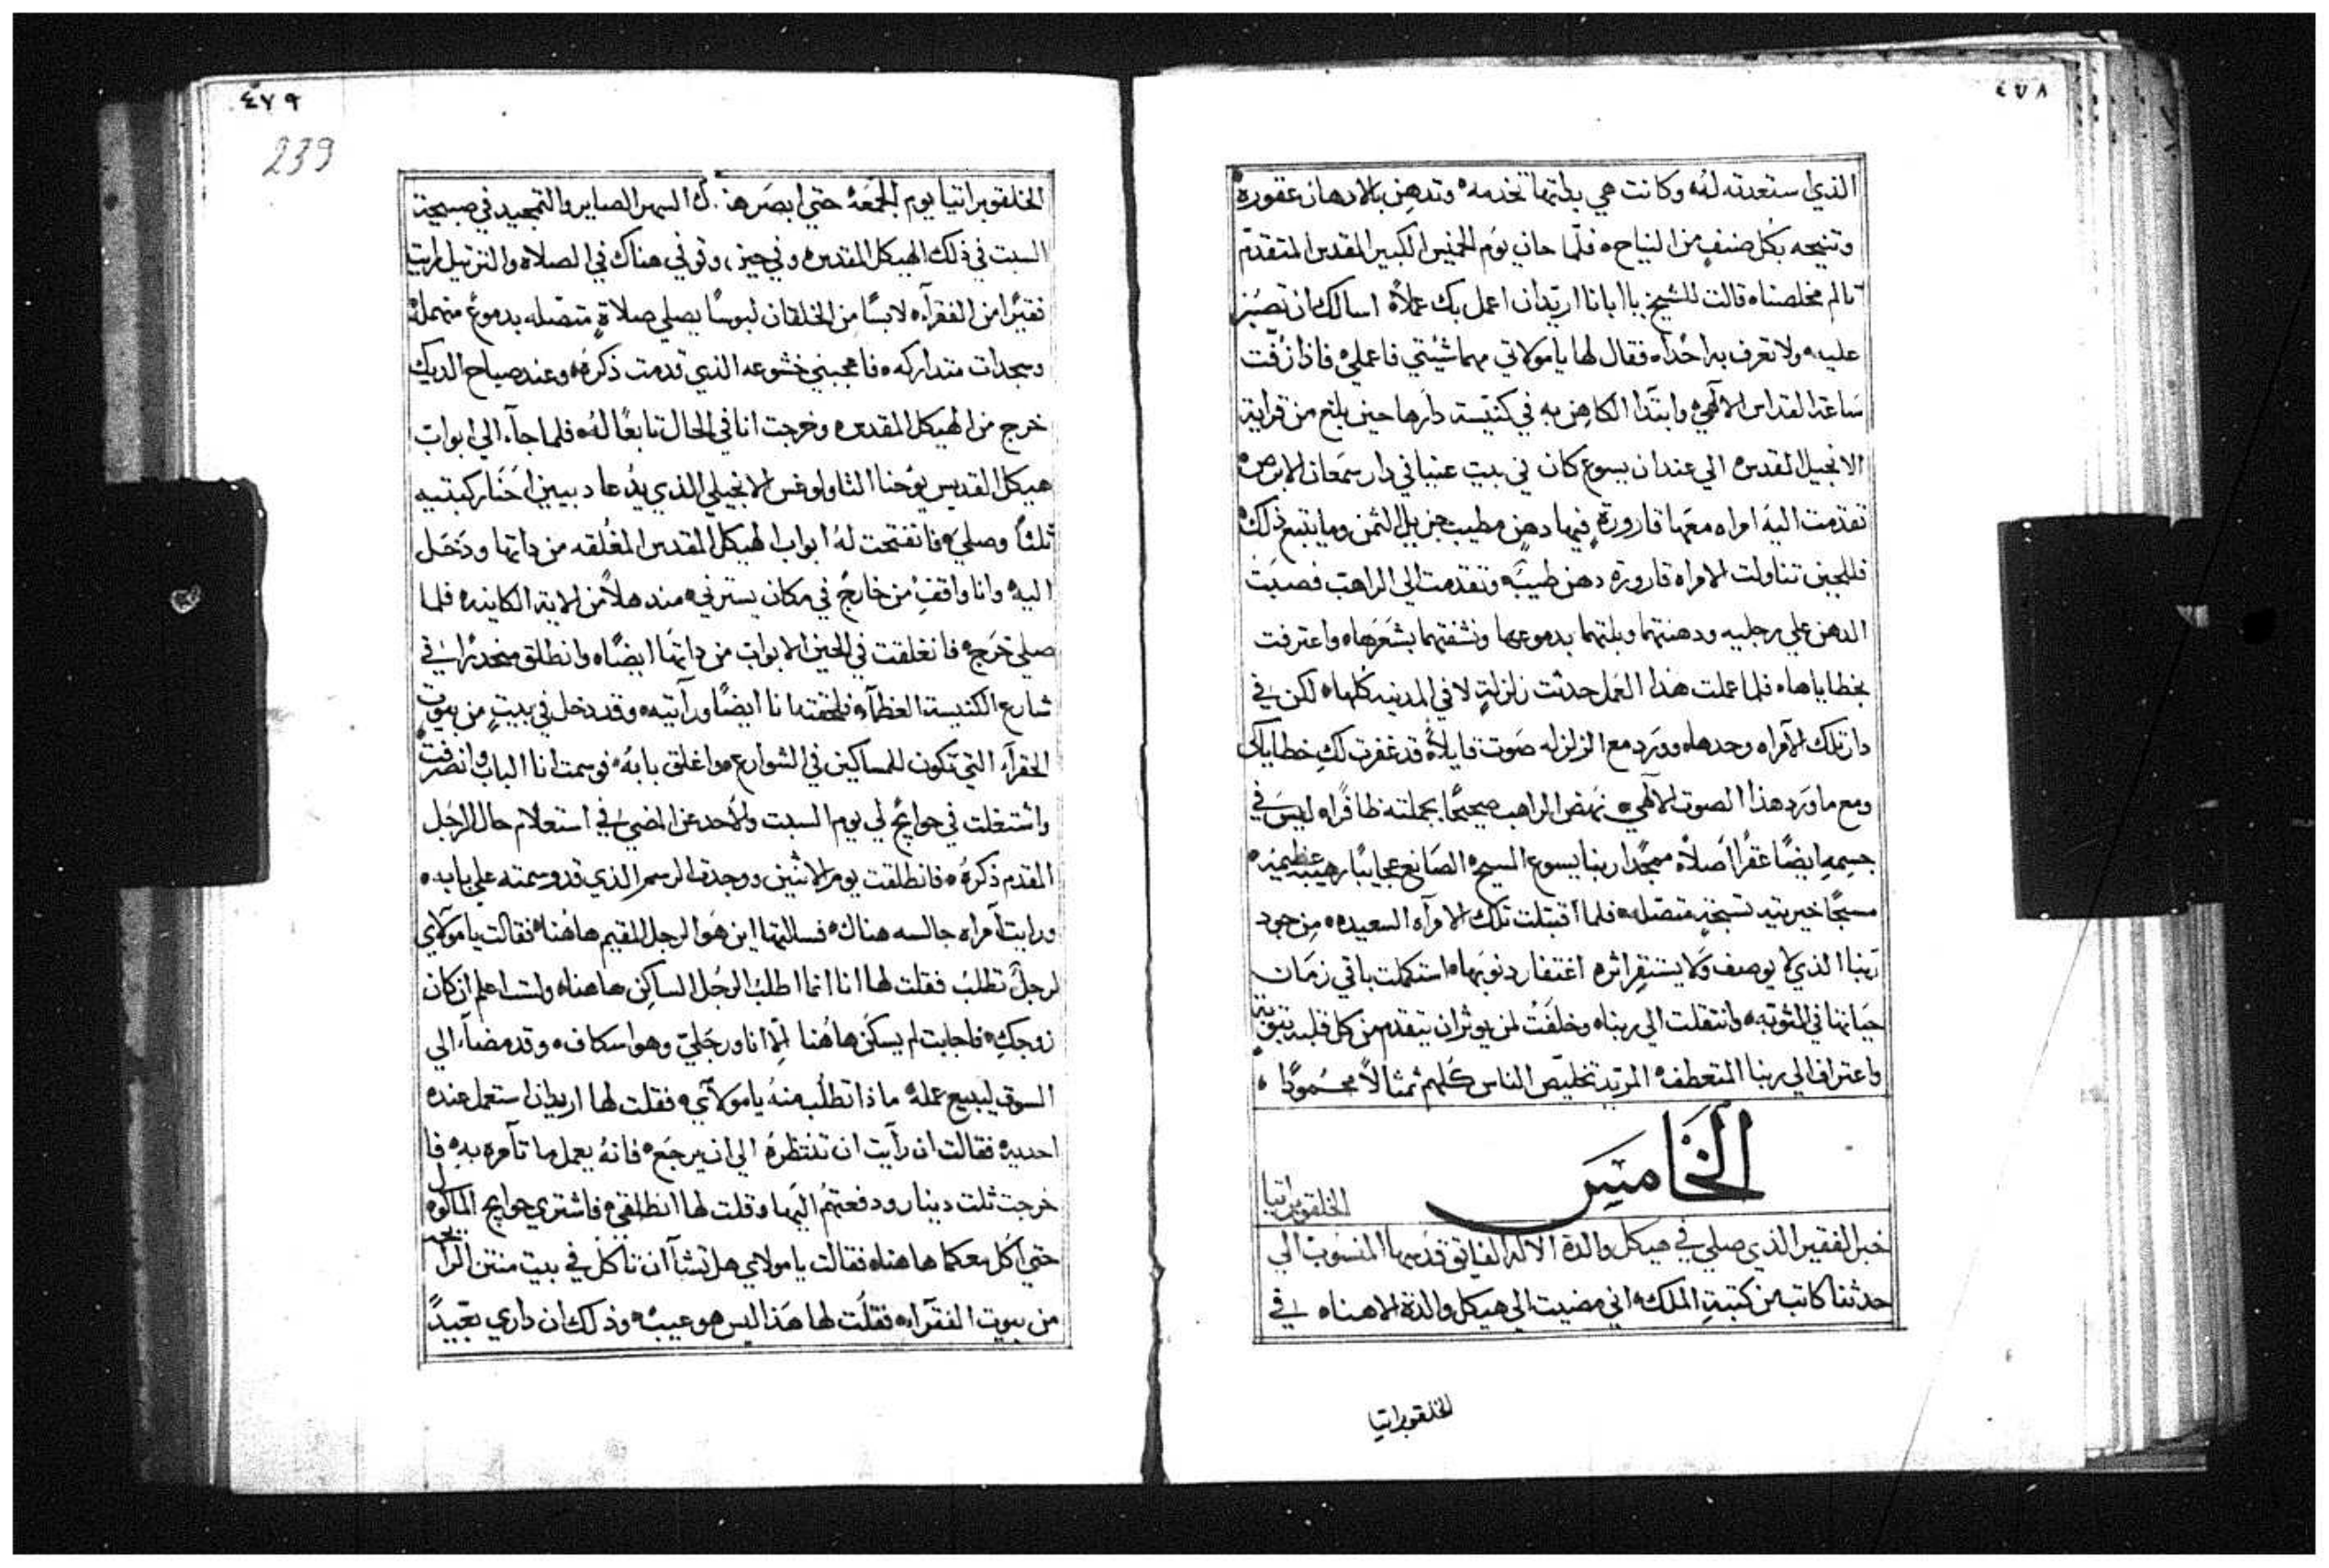 ٤٧٨
الذي استعدته له وكانت هي بذاتها تخدمه وتدهن بالادهان عقوره
وتنيحه بكل صنفٍ من النياح فلما حان يوم الخميس الكبير المقدس المتقدم
تالم مخلصنا قالت للشيخ يا ابانا اريد ان اعمل بك عملاً اسالك ان تصبر
عليه ولا تعرف به احداً فقال لها يا مولاتي مهما شيتي فاعلي فاذا زفت
ساعة القداس الالهي وابتدا الكاهن به في كنيسة دارها حين بلغ من قراية
الانجيل المقدس الي عند ان يسوع كان في بيت عنيا في دار سمعان الابرص
تقدمت اليه امراه معها قارورة فيها دهن مطيب جزيل الثمن وما يتبع ذلك
فللحين تناولت الامراه قارورة دهن طيبه وتقدمت الي الراهب فصبت
الدهن علي رجليه ودهنتهما وبلتهما بدموعها ونشفتهما بشعرها واعترفت
بخطاياها فلما عملت هذا العمل حدثت زلزلةٍ لا في المدينه كلها لكن في
دار تلك الامراه وحدها وورد مع الزلزله صوت قايلاً قد غفرت لكِ خطاياكي
ومع ما ورد هذا الصوت الالهي نهض الراهب صحيحًا بجملته ظافرًا ليس في
جسمه ايضًا عقرًا اصلاً ممجدًا ربنا يسوع المسيح الصانع عجايبًا رهيبه عظيمه
مسبحًا خيريته تسبحةٍ متصله فلما اقتبلت تلك الامراه السعيده من جود
ربنا الذي لا يوصف ولا يستقر اثره اغتفار دنوبها استكملت باقي زمان
حياتها في التوبه وانتقلت الي ربنا وخلفت لمن يوثر ان يتقدم من كل قلبه بتوبةٍ
واعتراف الي ربنا المتعطف المريد تخليص الناس كلهم تمثالاً محمودًا
الخامس
الخلقوبراتيا
خبر الفقير الذي صلي في هيكل والدة الاله الفايق قدسها المنسوب الي
حدثنا كاتب من كتبة الملك اني مضيت الي هيكل والدة الاهنا في
الخلقوبراتيا
٤٧٩
239
الخلقوبراتيا يوم الجمعه حتي ابصر هذ ك السهر الصاير والتمجيد في صبيحة
السبت في ذلك الهيكل المقدس وفي حين وقوفي هناك في الصلاه والترتيل رايت
فقيرًا من الفقرآ لابسًا من الخلقان لبوسًا يصلي صلاةٍ متصله بدموع منهمله
وسجدات متداركه فاعجبني خشوعه الذي قدمت ذكره وعند صياح الديك
خرج من الهيكل المقدس وخرجت انا في الحال تابعًا له فلما جآ الي ابواب
هيكل القديس يوحنا الثاولوغس الانجيلي الذي يدعا دبيين احنا ركبتيه
ثلثًا وصلي فانفتحت له ابواب الهيكل المقدس المغلقه من داتها ودخل
اليه وانا واقف من خارج في مكان يسترني مندهلاً من الاية الكاينه فلما
صلي خرج فانغلقت في الحين الابواب من داتها ايضًا وانطلق منحدرًا في
شارع الكنيسة العظمآ فلحقته انا ايضًا ورآيته وقد دخل في بيتٍ من بيوت
الحقرآ التي تكون للمساكين في الشوارع واغلق بابه فوسمت انا الباب وانصرفت
واشتغلت في حوايج لي يوم السبت والاحد عن المضي في استعلام حال الرجل
المقدم ذكره فانطلقت يوم الاثنين ووجدت الرسم الذي قد وسمته علي بابه
ورايت امراه جالسه هناك فسالتها اين هو الرجل المقيم هاهنا فقالت يا مولاي
لرجل تطلب فقلت لها انا انما اطلب الرجل الساكن هاهنا ولست اعلم ان كان
زوجكِ فاجابت لم يسكن هاهنا الا انا ورجلي وهو اسكاف وقد مضآ الي
السوق ليبيع عمله ماذا تطلب منه يا مولآي فقلت لها اريد ان استعمل عنده
احديه فقالت ان رآيت ان تنتظره الي ان يرجع فانه يعمل ما تآمره به فا
خرجت ثلث دينار ودفعتهُ اليها وقلت لها انطلقي فاشتري حوايج الماكول
حتي اكل معكما هاهنا فقالت يا مولاي هل تشآ ان تاكل في بيت منتن الرايحه
من بيوت الفقرآ فقلت لها هذا ليس هو عيب وذلك ان داري بعيدً